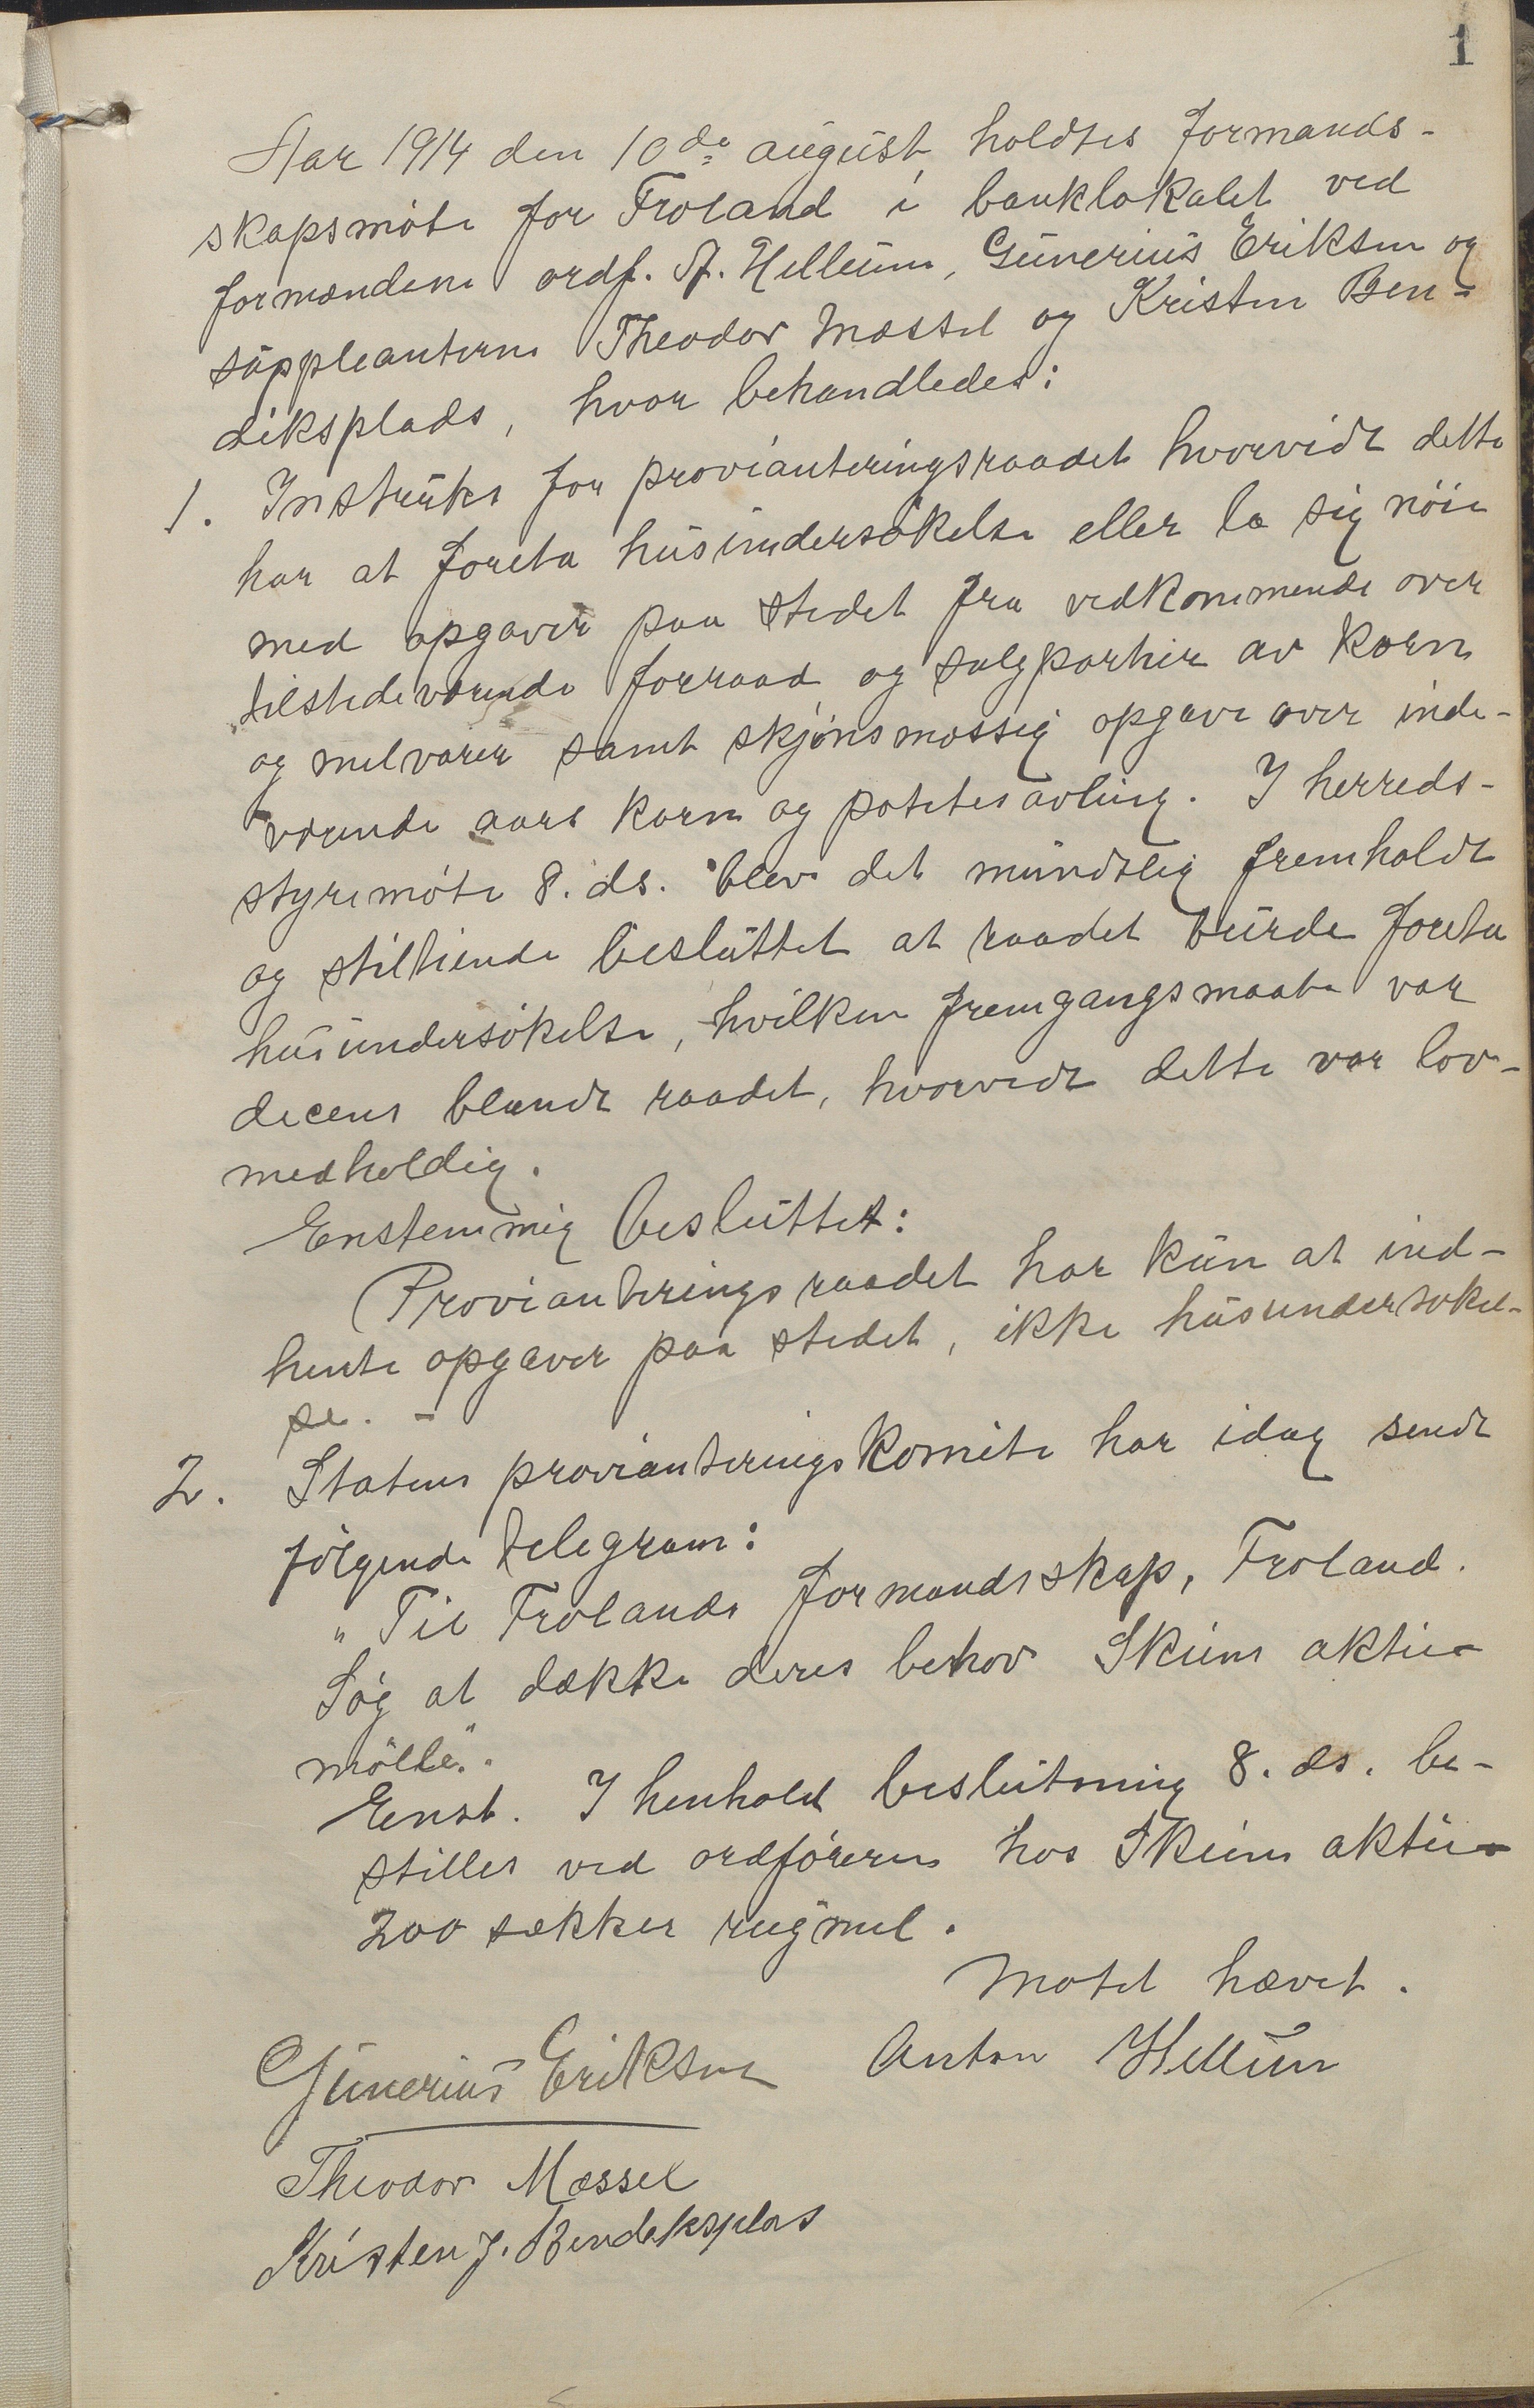 1
Aar 1914 den 10de august holdtes formands-
skapsmöte for Froland i banklokalet ved
formændene ordf. A. Hellum, Gunerius Eriksen og
suppleanterne Theodor Mæssel og Kristen Ben-
diksplads, hvor behandledes:
1. Instruks for provianteringsraadet hvorvidt dette
har at foreta husundersökelse eller la sig nöie
med opgaver paa stedet fra vedkommende over
tilstedeværende forraad og salgpartier av korn
og melvarer samt skjönsmæssig opgave over inde-
værende aars korn og potetesavling. I herreds-
styremöte 8. ds. blev det mundtlig fremholdt
og stiltiende besluttet at raadet burde foreta
husundersökelse, hvilken fremgangsmaate var
decens blandt raadet, hvorvidt dette var lov-
medholdig.
Enstemmig besluttet:
Provianteringsraadet har kun at ind-
hente opgaver paa stedet, ikke husundersökel-
se. -
2. Statens provianteringskomite har idag sendt
fölgende telegram:
"Til Frolands formandsskap, Froland.
Søg at dække deres behov Skiens aktie-
mölle".
Enst. I henhold beslutning 8. ds. be-
stilles ved ordföreren hos Skiens aktie-
200 sækker rugmel.
Motet hævet.
Gunerius Eriksen Anton Hellum
Theodor Mæssel
Kristen J. Bendiksplas